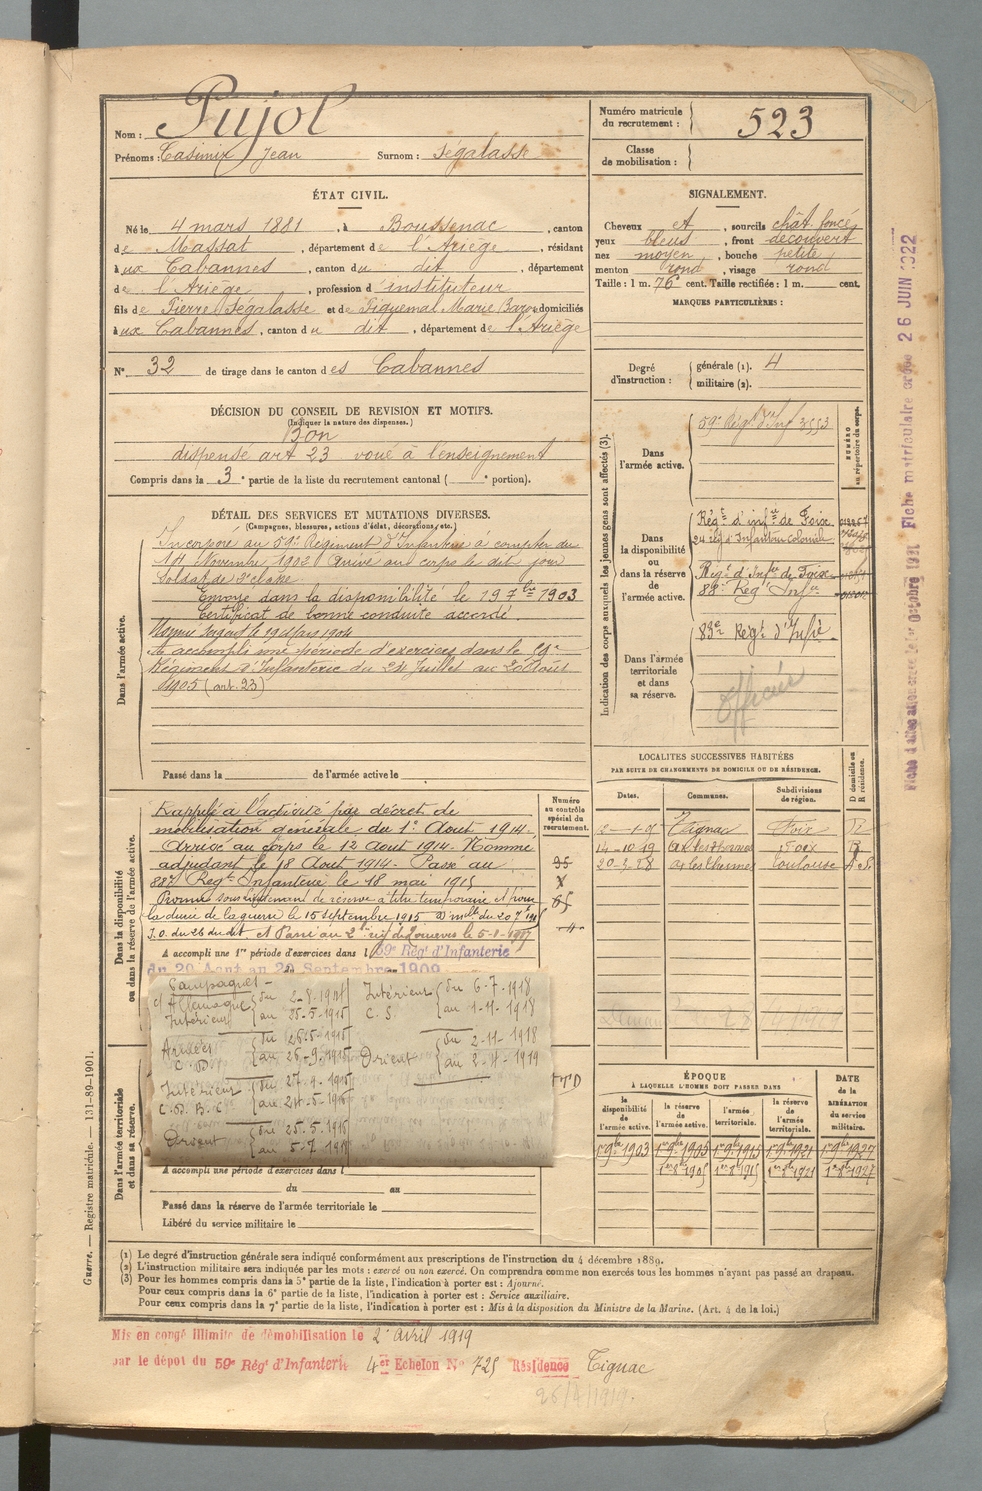 Nom : Pujol
Prénoms : Casimir Jean Surnom : Ségalasse
Numéro matricule du recrutement : 523
Classe de mobilisation :
ÉTAT CIVIL.
Né le 4 mars 1881, à Boussenac, canton
de Massat, département de l'Ariège, résidant
à aux Cabannes, canton du dit, département
de l'Ariège, profession d'instituteur
fils de Pierre Ségalasse et de Figuemal Marie domiciliés
à aux Cabannes, canton du dit, département de l'Ariège
N° 32 de tirage dans le canton des Cabannes
SIGNALEMENT.
Cheveux et, sourcils chât foncé
yeux bleus, front découvert
nez moyen, bouche petite
menton rond, visage rond
Taille : 1 m. 76 cent. Taille rectifiée : 1 m. cent.
MARQUES PARTICULIÈRES :
Degré d'instruction : générale (1). 4
militaire (2).
DÉCISION DU CONSEIL DE REVISION ET MOTIFS.
(Indiquer la nature des dispenses.)
Bon
dispensé art 23 voué à l'enseignement
Compris dans la 3e partie de la liste du recrutement cantonal ( e portion).
DÉTAIL DES SERVICES ET MUTATIONS DIVERSES.
(Campagnes, blessures, actions d'éclat, décorations, etc.)
Dans l'armée active.
Incorporé au 59e Régiment d'Infanterie à compter du
14 Novembre 1902 Arrivé au corps le dit jour
Soldat de 2e classe
Envoyé dans la disponibilité le 19 7bre 1903
Certificat de bonne conduite accordé.
Nommé sergent le 19 Mars 1904
A accompli une période d'exercices dans le 59e
Régiment d'Infanterie du 24 Juillet au 20 Août
1905 (art. 23)
Passé dans la de l'armée active le
Indication des corps auxquels les jeunes gens sont affectés (3).
NUMÉRO au répertoire du corps.
Dans l'armée active.
59e Régt d'Inf 3553
Dans la disponibilité ou dans la réserve de l'armée active.
Régt d'infrie de Foix
24 rég d'Infanterie Coloniale
Régt d'Infie de Foix
88e Régt Infie
Dans l'armée territoriale et dans sa réserve.
83e Régt d'Infie
Officier
Dans la disponibilité ou dans la réserve de l'armée active.
Numéro au contrôle spécial du recrutement.
Rappelé à l'activité par décret de
mobilisation générale du 1er Août 1914.
Arrivé au corps le 12 Août 1914. Nommé
adjudant le 18 Août 1914. Passé au
88e Regt Infanterie le 18 mai 1915
Promu sous lieutenant de réserve à titre temporaire et pour
la durée de la guerre le 15 septembre 1915
J.O. du 26 du dit et Passé au 2e rég de Zouaves le
A accompli une 1re période d'exercices dans l 59e Régt d'Infanterie
du 20 Août au 20 Septembre 1909
Campagnes -
c/ Allemagne
Intérieur { du 2-8-1914 au 25-5-1915
Armées { du 26-5-1915
Intérieur
Orient { du 25.5.1915
Intérieur C.S. { du 6-7-1918 au 1-11-1918
Orient { du 2-11-1918 au 2-4-1919
LOCALITÉS SUCCESSIVES HABITÉES
PAR SUITE DE CHANGEMENTS DE DOMICILE OU DE RÉSIDENCE.
Dates. Communes. Subdivisions de région. D domicile ou R résidence.
Tignac Foix R
14-10-19 Ax les Thermes Foix R
20-3-28 Ax les Thermes Toulouse
ÉPOQUE
À LAQUELLE L'HOMME DOIT PASSER DANS
DATE de la LIBÉRATION du service militaire.
la disponibilité de l'armée active.
la réserve de l'armée active.
l'armée territoriale.
la réserve de l'armée territoriale.
1er 9bre 1903 1er 9bre 1905 1er 9bre 1915 1er 9bre 1921 1er 9bre 1927
Dans l'armée territoriale et dans sa réserve.
A accompli une période d'exercices dans l
du au
Passé dans la réserve de l'armée territoriale le
Libéré du service militaire le
(1) Le degré d'instruction générale sera indiqué conformément aux prescriptions de l'instruction du 4 décembre 1889.
(2) L'instruction militaire sera indiquée par les mots : exercé ou non exercé. On comprendra comme non exercés tous les hommes n'ayant pas passé au drapeau.
(3) Pour les hommes compris dans la 5e partie de la liste, l'indication à porter est : Ajourné.
Pour ceux compris dans la 6e partie de la liste, l'indication à porter est : Service auxiliaire.
Pour ceux compris dans la 7e partie de la liste, l'indication à porter est : Mis à la disposition du Ministre de la Marine. (Art. 4 de la loi.)
Mis en congé illimité de démobilisation le 2 avril 1919
par le dépôt du 59e Régt d'Infanterie 4er Echelon No 725 Résidence Tignac
26/4/1919.
Guerre. — Registre matricule. — 131-89-1901.
Fiche matriculaire créée 26 JUIN 1922